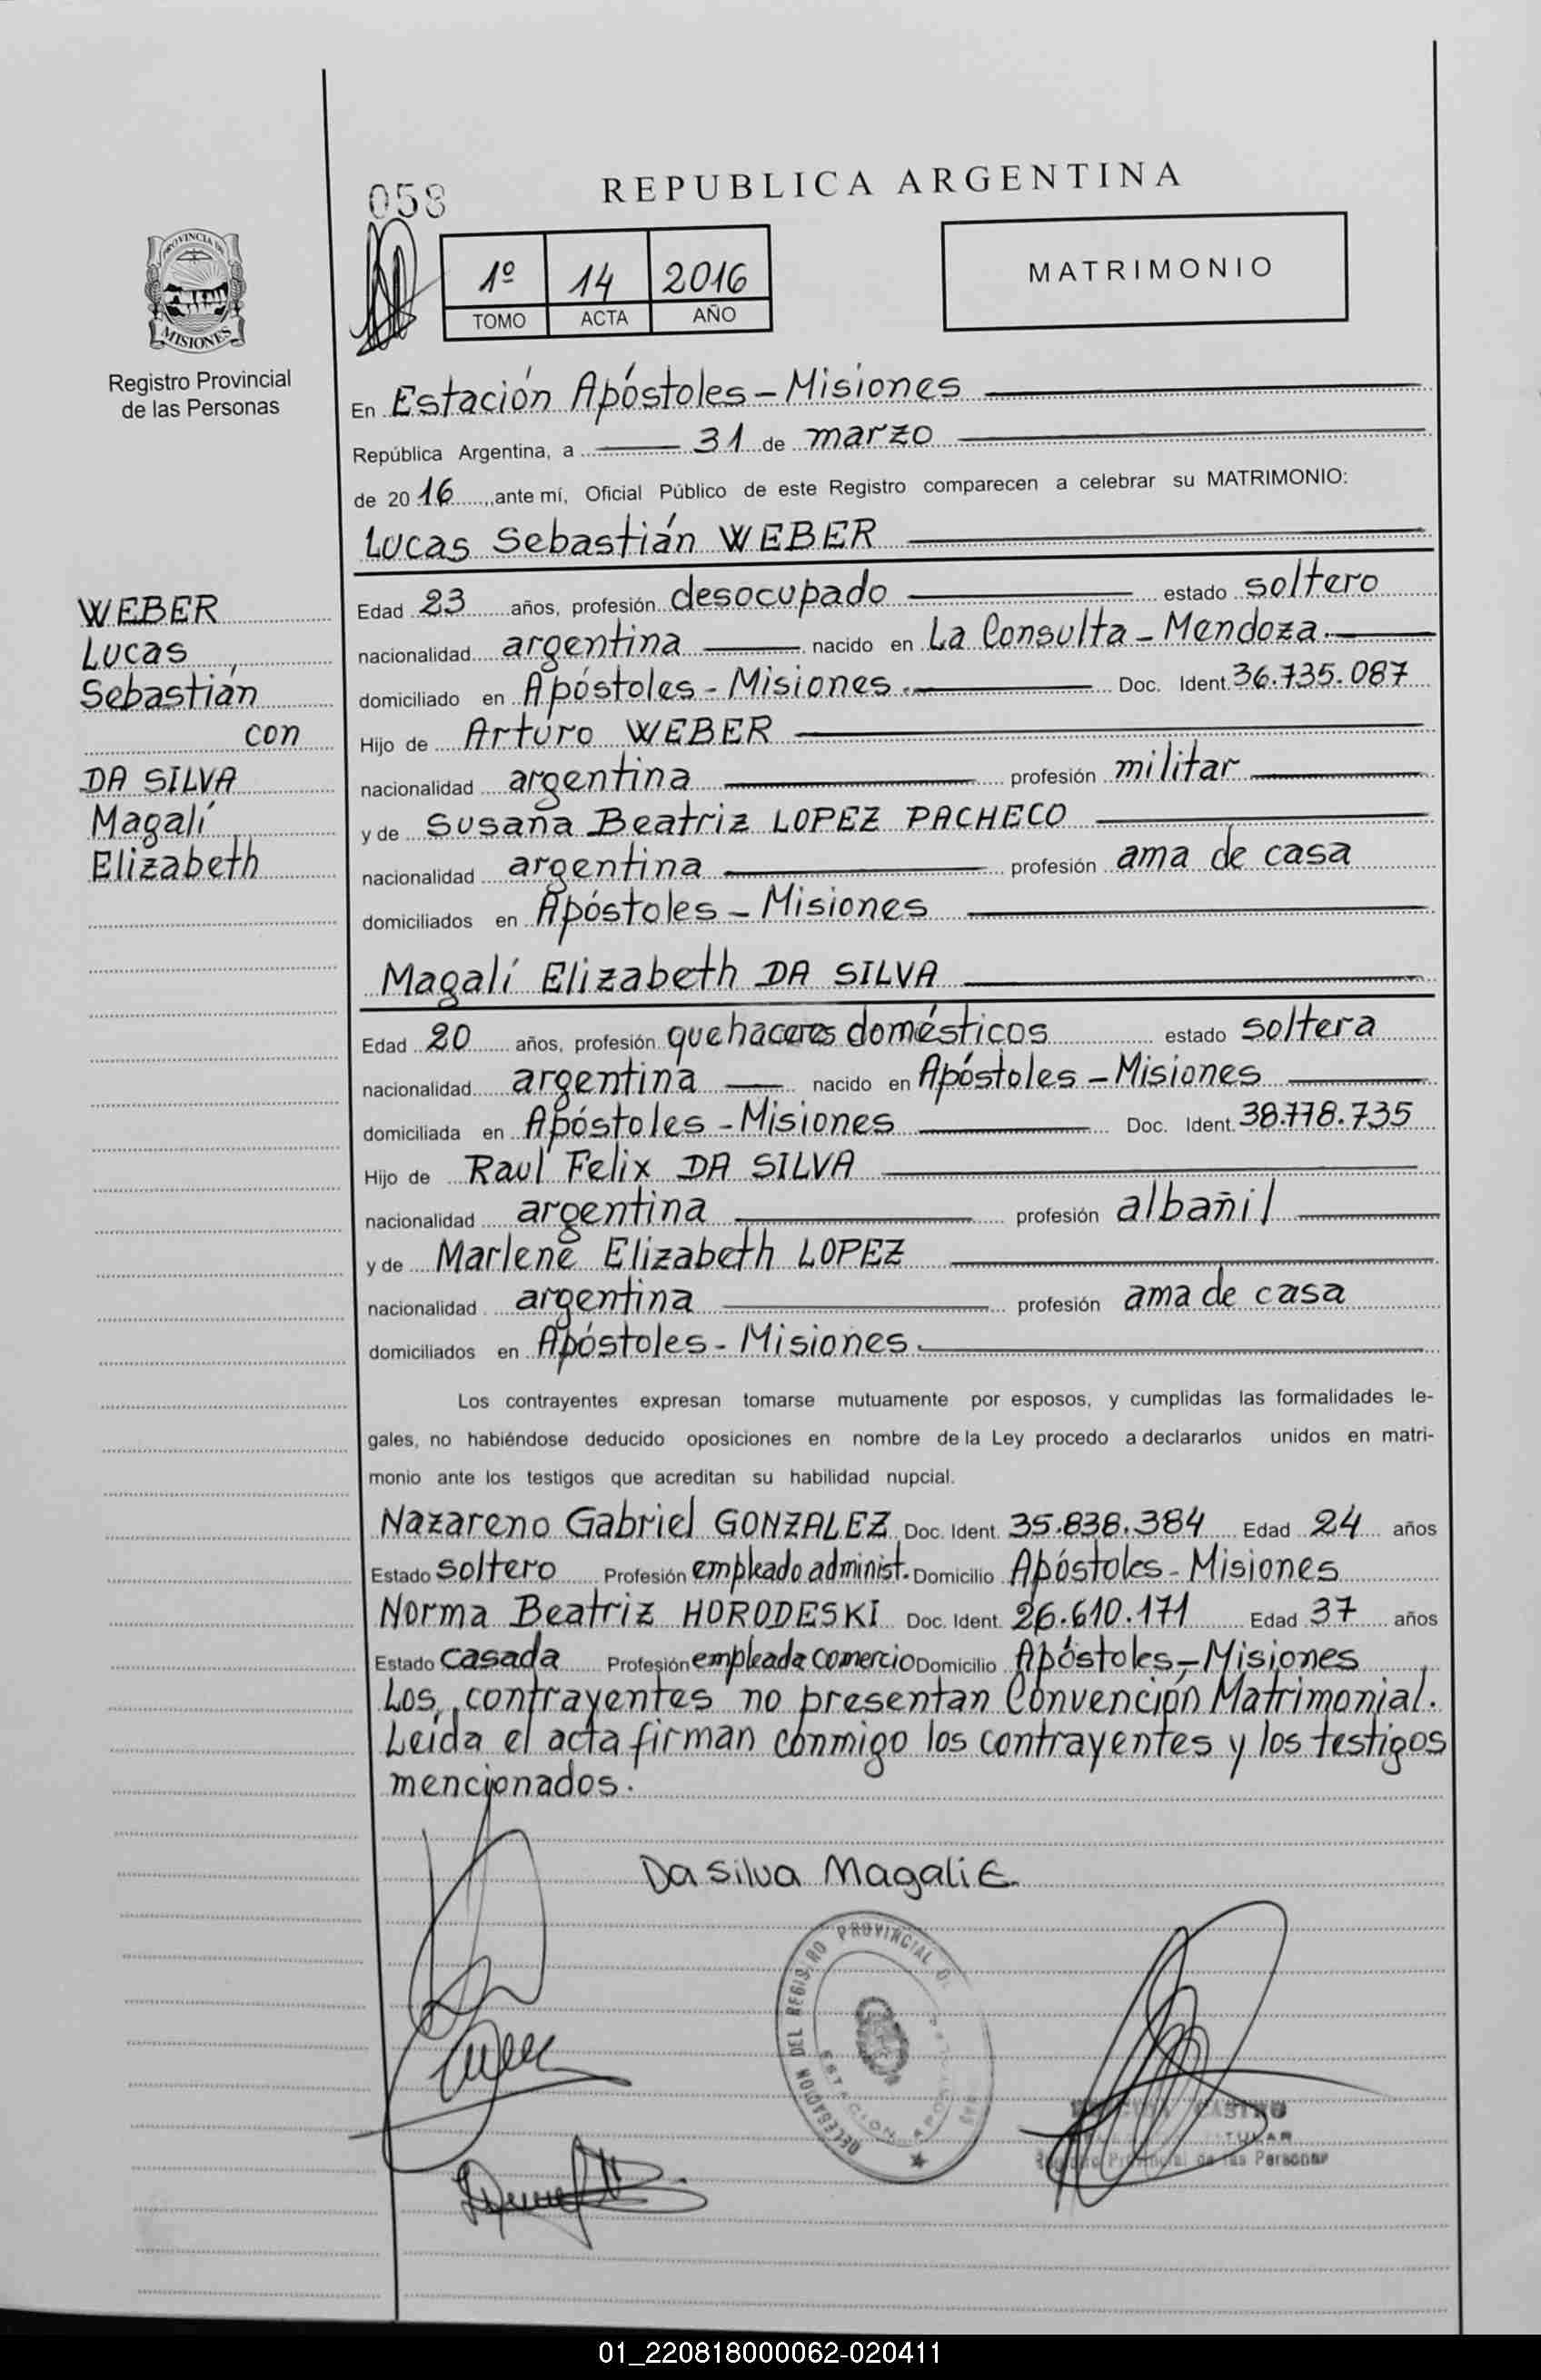 REPUBLICA ARGENTINA
058
PROVINCIA DE
MISIONES
Registro Provincial
de las Personas
1º 14 2016
TOMO ACTA AÑO
MATRIMONIO
En Estación Apóstoles - Misiones
República Argentina, a 31 de marzo
de 2016, ante mí, Oficial Público de este Registro comparecen a celebrar su MATRIMONIO:
Lucas Sebastián WEBER
WEBER
Lucas
Sebastián
con
DA SILVA
Magalí
Elizabeth
Edad 23 años, profesión desocupado estado soltero
nacionalidad argentina nacido en La Consulta - Mendoza.
domiciliado en Apóstoles - Misiones. Doc. Ident. 36.735.087
Hijo de Arturo WEBER
nacionalidad argentina profesión militar
y de Susana Beatriz LOPEZ PACHECO
nacionalidad argentina profesión ama de casa
domiciliados en Apóstoles - Misiones
Magalí Elizabeth DA SILVA
Edad 20 años, profesión quehaceres domésticos estado soltera
nacionalidad argentina nacido en Apóstoles - Misiones
domiciliada en Apóstoles - Misiones Doc. Ident. 38.778.735
Hijo de Raul Felix DA SILVA
nacionalidad argentina profesión albañil
y de Marlene Elizabeth LOPEZ
nacionalidad argentina profesión ama de casa
domiciliados en Apóstoles - Misiones.
Los contrayentes expresan tomarse mutuamente por esposos, y cumplidas las formalidades le-
gales, no habiéndose deducido oposiciones en nombre de la Ley procedo a declararlos unidos en matri-
monio ante los testigos que acreditan su habilidad nupcial.
Nazareno Gabriel GONZALEZ Doc. Ident. 35.838.384 Edad 24 años
Estado soltero Profesión empleado administ. Domicilio Apóstoles - Misiones
Norma Beatriz HORODESKI Doc. Ident. 26.610.171 Edad 37 años
Estado casada Profesión empleada comercio Domicilio Apóstoles - Misiones
Los contrayentes no presentan Convención Matrimonial.
Leída el acta firman conmigo los contrayentes y los testigos
mencionados.
Da Silva Magali E.
DELEGACION DEL REGISTRO PROVINCIAL
ESTACION
CASTRO
Registro Provincial de las Personas
01_220818000062-020411